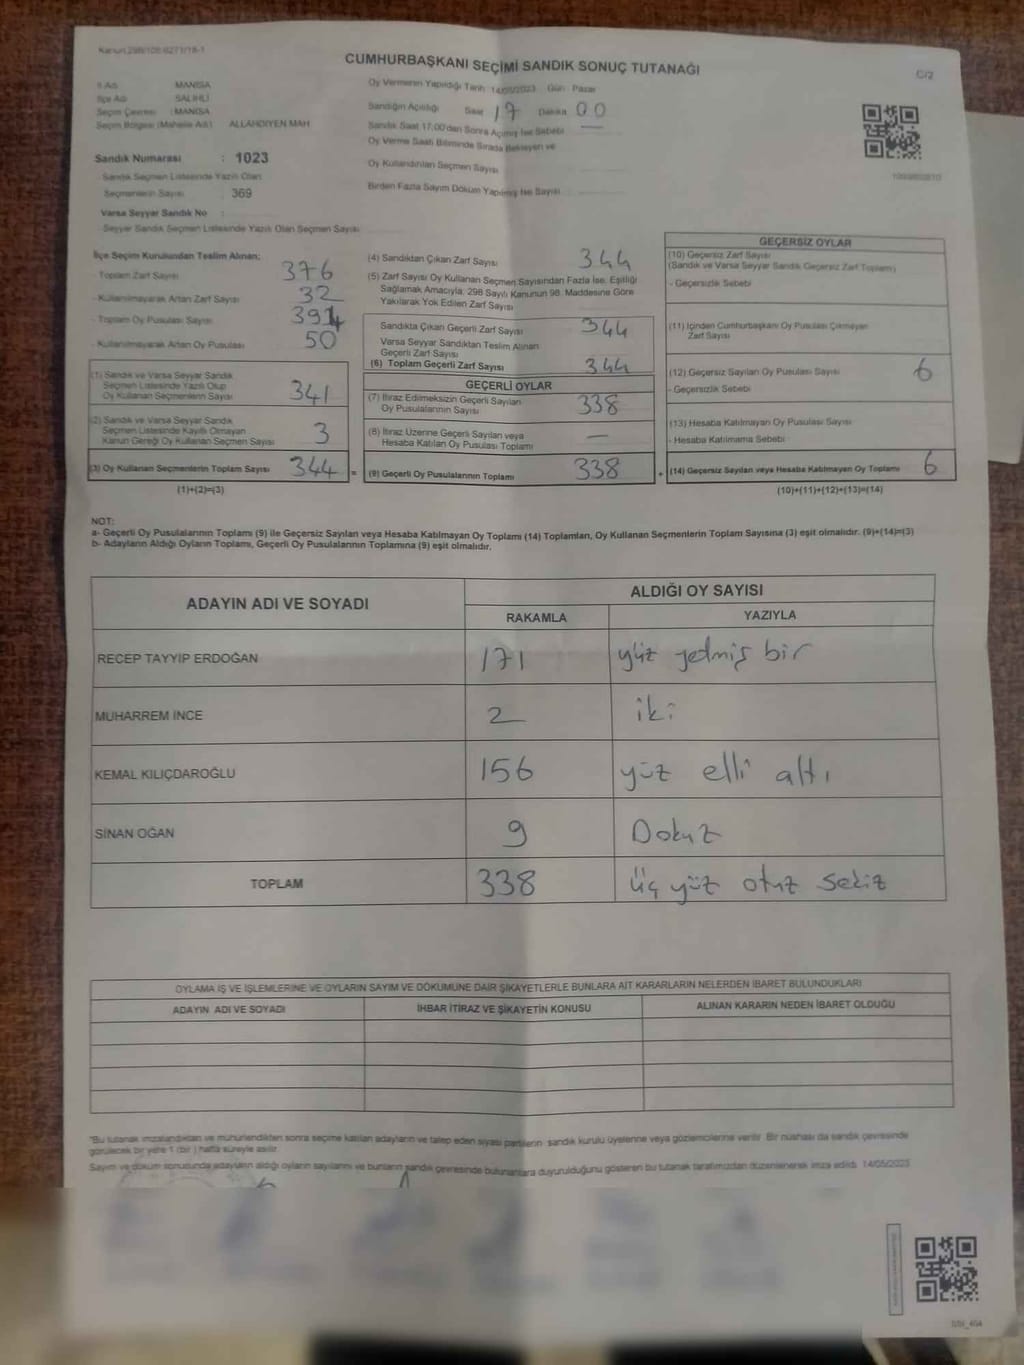 Kanun 298/105 6271/18-1
CUMHURBAŞKANI SEÇİMİ SANDIK SONUÇ TUTANAĞI
C/2
İl Adı MANİSA
İlçe Adı SALİHLİ
Seçim Çevresi : MANİSA
Seçim Bölgesi (Mahalle Adı) ALLAHDİYEN MAH
Sandık Numarası : 1023
Sandık Seçmen Listesinde Yazılı Olan
Seçmenlerin Sayısı : 369
Varsa Seyyar Sandık No :
Seyyar Sandık Seçmen Listesinde Yazılı Olan Seçmen Sayısı
Oy Vermenin Yapıldığı Tarih :14/05/2023 Gün : Pazar
Sandığın Açıldığı Saat 17 Dakika 00
Sandık Saat 17:00'dan Sonra Açılmış İse Sebebi —
Oy Verme Saati Bitiminde Sırada Bekleyen ve
Oy Kullandırılan Seçmen Sayısı
Birden Fazla Sayım Döküm Yapılmış İse Sayısı
İlçe Seçim Kurulundan Teslim Alınan;
- Toplam Zarf Sayısı 376
- Kullanılmayarak Artan Zarf Sayısı 32
- Toplam Oy Pusulası Sayısı 394
- Kullanılmayarak Artan Oy Pusulası 50
(1) Sandık ve Varsa Seyyar Sandık
Seçmen Listesinde Yazılı Olup
Oy Kullanan Seçmenlerin Sayısı 341
(2) Sandık ve Varsa Seyyar Sandık
Seçmen Listesinde Kayıtlı Olmayan
Kanun Gereği Oy Kullanan Seçmen Sayısı 3
(3) Oy Kullanan Seçmenlerin Toplam Sayısı 344 =
(1)+(2)=(3)
(4) Sandıktan Çıkan Zarf Sayısı 344
(5) Zarf Sayısı Oy Kullanan Seçmen Sayısından Fazla İse, Eşitliği
Sağlamak Amacıyla, 298 Sayılı Kanunun 98. Maddesine Göre
Yakılarak Yok Edilen Zarf Sayısı
Sandıkta Çıkan Geçerli Zarf Sayısı 344
Varsa Seyyar Sandıktan Teslim Alınan
Geçerli Zarf Sayısı
(6) Toplam Geçerli Zarf Sayısı 344
GEÇERLİ OYLAR
(7) İtiraz Edilmeksizin Geçerli Sayılan
Oy Pusulalarının Sayısı 338
(8) İtiraz Üzerine Geçerli Sayılan veya
Hesaba Katılan Oy Pusulası Toplamı —
(9) Geçerli Oy Pusulalarının Toplamı 338 +
GEÇERSİZ OYLAR
(10) Geçersiz Zarf Sayısı
(Sandık ve Varsa Seyyar Sandık Geçersiz Zarf Toplamı)
- Geçersizlik Sebebi
(11) İçinden Cumhurbaşkanı Oy Pusulası Çıkmayan
Zarf Sayısı
(12) Geçersiz Sayılan Oy Pusulası Sayısı 6
- Geçersizlik Sebebi
(13) Hesaba Katılmayan Oy Pusulası Sayısı
- Hesaba Katılmama Sebebi
(14) Geçersiz Sayılan veya Hesaba Katılmayan Oy Toplamı 6
(10)+(11)+(12)+(13)=(14)
NOT:
a- Geçerli Oy Pusulalarının Toplamı (9) ile Geçersiz Sayılan veya Hesaba Katılmayan Oy Toplamı (14) Toplamları, Oy Kullanan Seçmenlerin Toplam Sayısına (3) eşit olmalıdır. (9)+(14)=(3)
b- Adayların Aldığı Oyların Toplamı, Geçerli Oy Pusulalarının Toplamına (9) eşit olmalıdır.
ADAYIN ADI VE SOYADI
ALDIĞI OY SAYISI
RAKAMLA YAZIYLA
RECEP TAYYİP ERDOĞAN 171 yüz yetmiş bir
MUHARREM İNCE 2 iki
KEMAL KILIÇDAROĞLU 156 yüz elli altı
SİNAN OĞAN 9 Dokuz
TOPLAM 338 üç yüz otuz sekiz
OYLAMA İŞ VE İŞLEMLERİNE VE OYLARIN SAYIM VE DÖKÜMÜNE DAİR ŞİKAYETLERLE BUNLARA AİT KARARLARIN NELERDEN İBARET BULUNDUKLARI
ADAYIN ADI VE SOYADI İHBAR İTİRAZ VE ŞİKAYETİN KONUSU ALINAN KARARIN NEDEN İBARET OLDUĞU
*Bu tutanak imzalandıktan ve mühürlendikten sonra seçime katılan adayların ve talep eden siyasi partilerin sandık kurulu üyelerine veya gözlemcilerine verilir. Bir nüshası da sandık çevresinde
görülecek bir yere 1 (bir) hafta süreyle asılır.
Sayım ve döküm sonucunda adayların aldığı oyların sayılarını ve bunların sandık çevresinde bulunanlara duyurulduğunu gösteren bu tutanak tarafımızdan düzenlenerek imza edildi. 14/05/2023